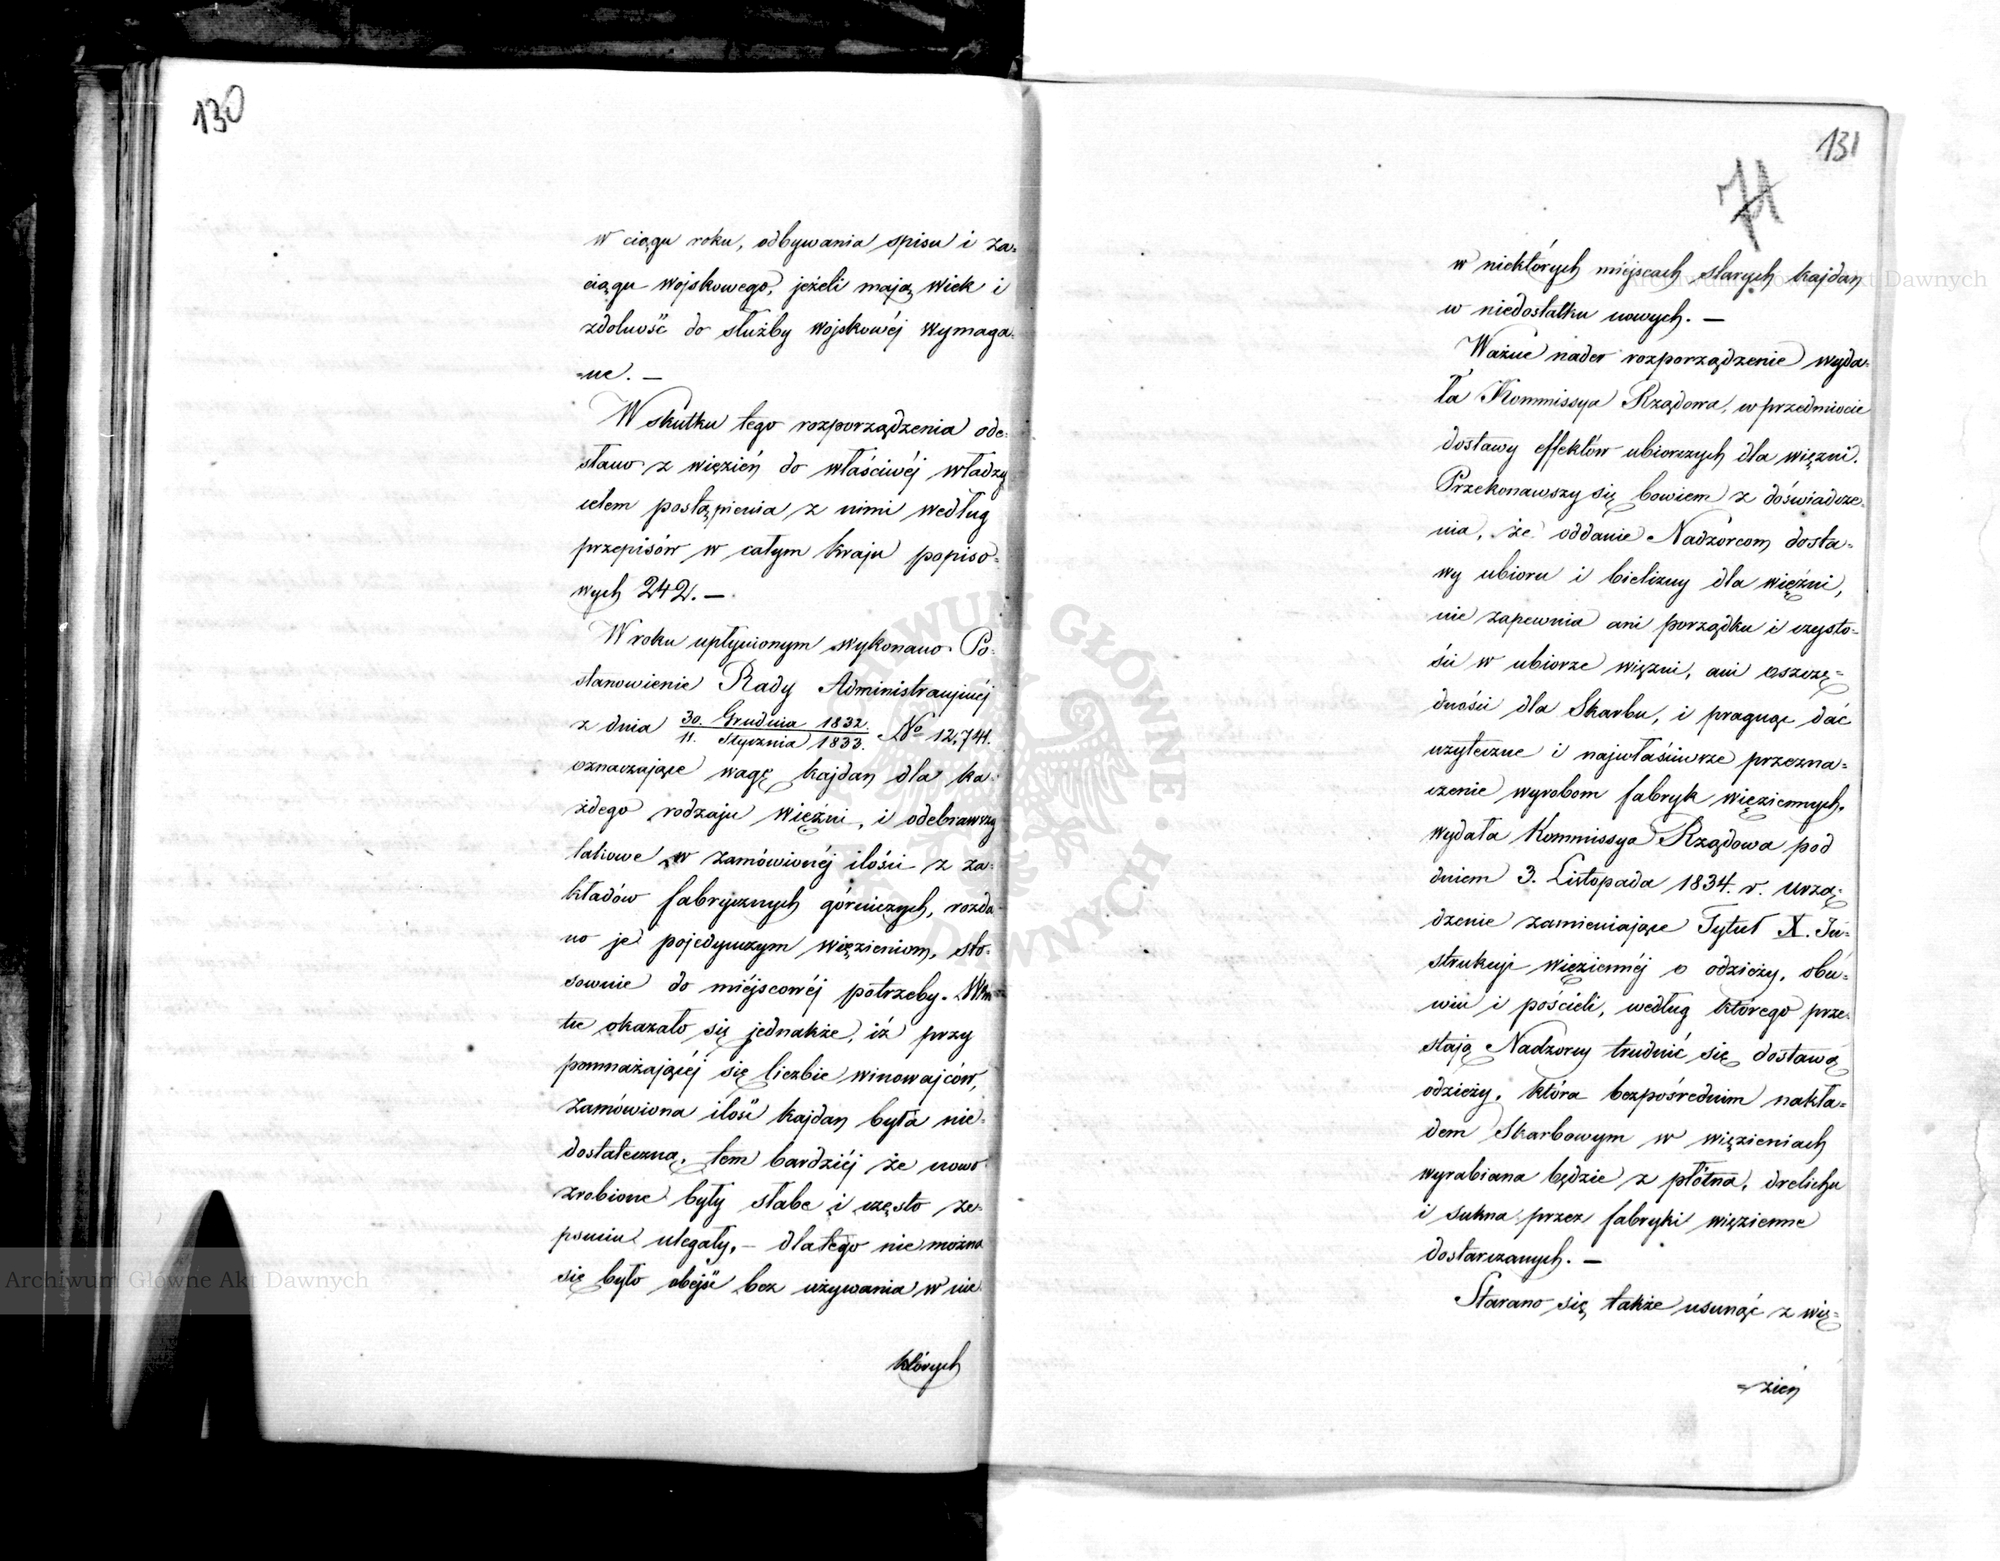 130
w ciągu roku, odbywania spisu i za=
ciągu wojskowego, jeżeli mają wiek i
zdolność do służby wojskowéj wymaga=
=ne. —
W skutku tego rozporządzenia ode=
słano z więzień do właściwéj władzy
celem postąpienia z nimi według
przepisów w całym kraju popiso=
wych 242. —
W roku upłynionym wykonano Po=
stanowienie Rady Administracyjnéj
z dnia 30. Grudnia 1832 / 11. Stycznia 1833. No 12,744.
oznaczające wagę kajdan dla ka=
żdego rodzaju więźni, i odebrawszy
takowe w zamówionéj ilości z za=
kładów fabrycznych górniczych, rozda=
no je pojedynczym więzieniom, sto=
sownie do miéjscowéj potrzeby.
okazało się jednakże, iż przy
pomnażającéj się liczbie winowajców,
zamówiona ilość kajdan była nie=
dostateczną, tem bardziéj że nowo
zrobione były słabe i często ze=
psuciu ulegały, — dla tego nie można
się było obejść bez używania w nie=
których
131
71
w niektórych miéjscach starych kajdan
w niedostatku nowych. —
Ważne nader rozporządzenie wyda=
ła Kommissya Rządowa, w przedmiocie
dostawy effektów ubiorczych dla więźni.
Przekonawszy się bowiem z doświadcze=
nia, że oddanie Nadzorcom dosta=
wy ubioru i bielizny dla więźni,
nie zapewnia ani porządku i czysto=
ści w ubiorze więźni, ani oszczę=
dności dla Skarbu, i pragnąc dać
użyteczne i najwłaściwsze przezna=
czenie wyrobom fabryk więziennych,
wydała Kommissya Rządowa pod
dniem 3. Listopada 1834. r. urzą=
dzenie zamieniające Tytuł X. In=
strukcyi więziennéj o odzieży, obu=
wiu i pościeli, według którego prze=
stają Nadzorcy trudnić się dostawą
odzieży, która bezpośrednim nakła=
dem Skarbowym w więzieniach
wyrabiana będzie z płótna, drelichu
i sukna przez fabryki więzienne
dostarczanych. —
Starano się także usunąć z wię=
=zień
Archiwum Główne Akt Dawnych
Archiwum Główne Akt Dawnych
ARCHIWUM GŁÓWNE AKT DAWNYCH